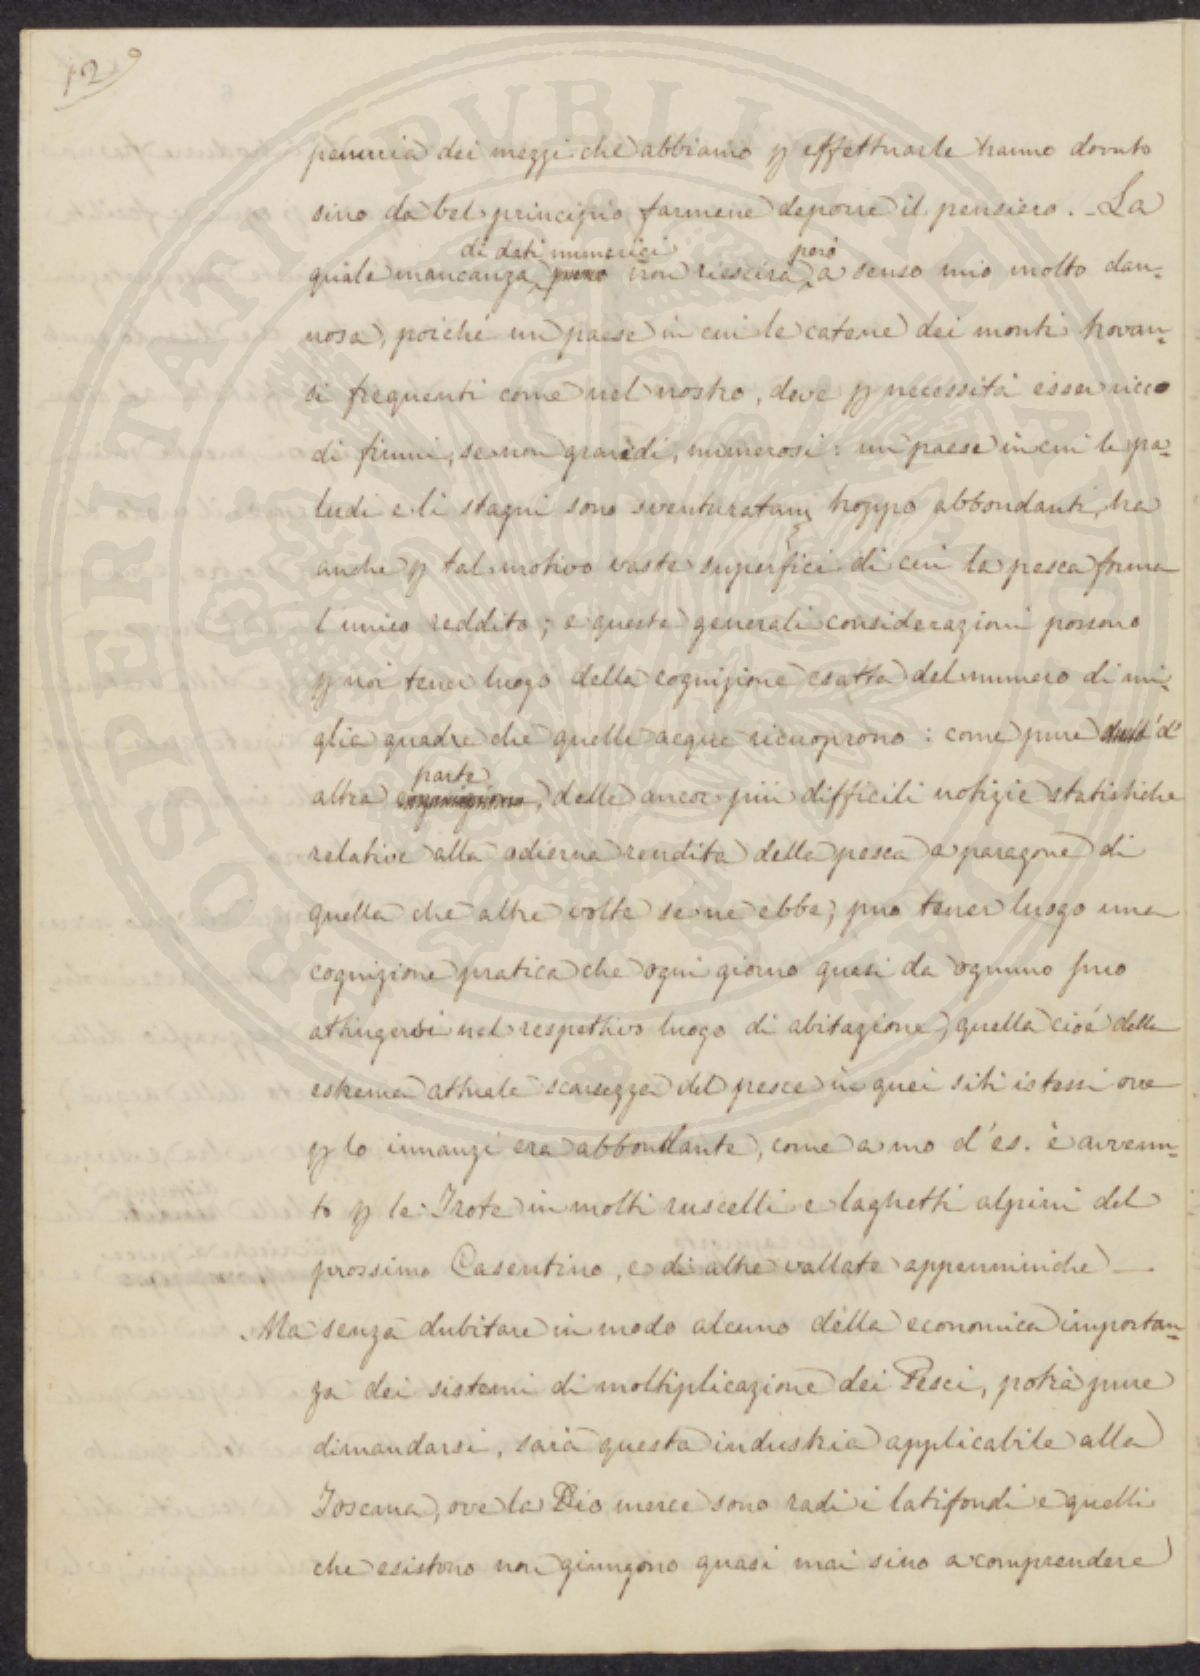 12
penuria dei mezzi che abbiamo p effettuarle hanno dovuto
sino da bel principio farmene deporre il pensiero. - La
di dati numerici però
quale mancanza, però non riescirà, a senso mio molto dan=
nosa, poichè un paese in cui le catene dei monti trovan=
si frequenti come nel nostro, deve p necessità esser ricco
di fiumi, se non grandi, numerosi: un paese in cui le pa=
ludi e li stagni sono sventuratam troppo abbondanti, ha
anche p tal motivo vaste superfici di cui la pesca forma
l'unico reddito; e queste generali considerazioni possono
p noi tener luogo della cognizione esatta del numero di mi=
glia quadre che quelle acque ricuoprono: come pure d'
parte
altra cognizione, delle ancor più difficili notizie statistiche
relative alla odierna rendita della pesca a paragone di
quella che altre volte se ne ebbe, può tener luogo una
cognizione pratica che ogni giorno quasi da ognuno può
attingersi nel respettivo luogo di abitazione, quella cioè della
estrema attuale scarsezza del pesce in quei siti istessi ove
p lo innanzi era abbondante, come a mo d'es. è avvenu=
to p le Trote in molti ruscelli e laghetti alpini del
prossimo Casentino, e di altre vallate appenniniche —
Ma senza dubitare in modo alcuno della economica importan=
za dei sistemi di moltiplicazione dei Pesci, potrà pure
dimandarsi, sarà questa industria applicabile alla
Toscana, ove la Dio mercè sono radi i latifondi e quelli
che esistono non giungono quasi mai sino a comprendere
PROSPERITATI PUBLICAE AUGENDAE